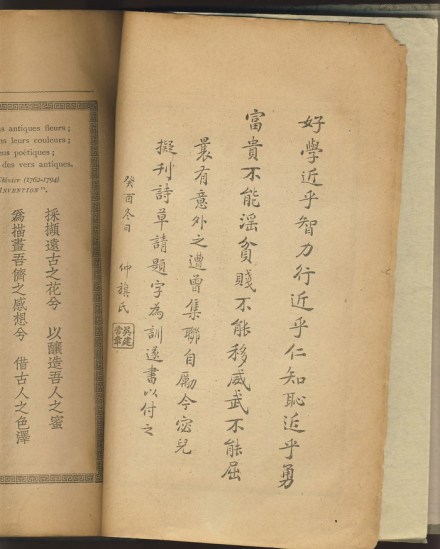 好學近乎智力行近乎仁知恥近乎勇
富貴不能滛貧賤不能移威武不能屈
曩有意外之遭曾集聯自勵今宓兒
擬刊詩草請題字為訓遂書以付之
癸酉冬日 仲旗氏
antiques fleurs;
leurs couleurs;
poétiques;
des vers antiques.
Chénier (1762-1794)
INVENTION".
採擷遠古之花兮 以釀造吾人之蜜
爲描畫吾儕之感想兮 借古人之色澤